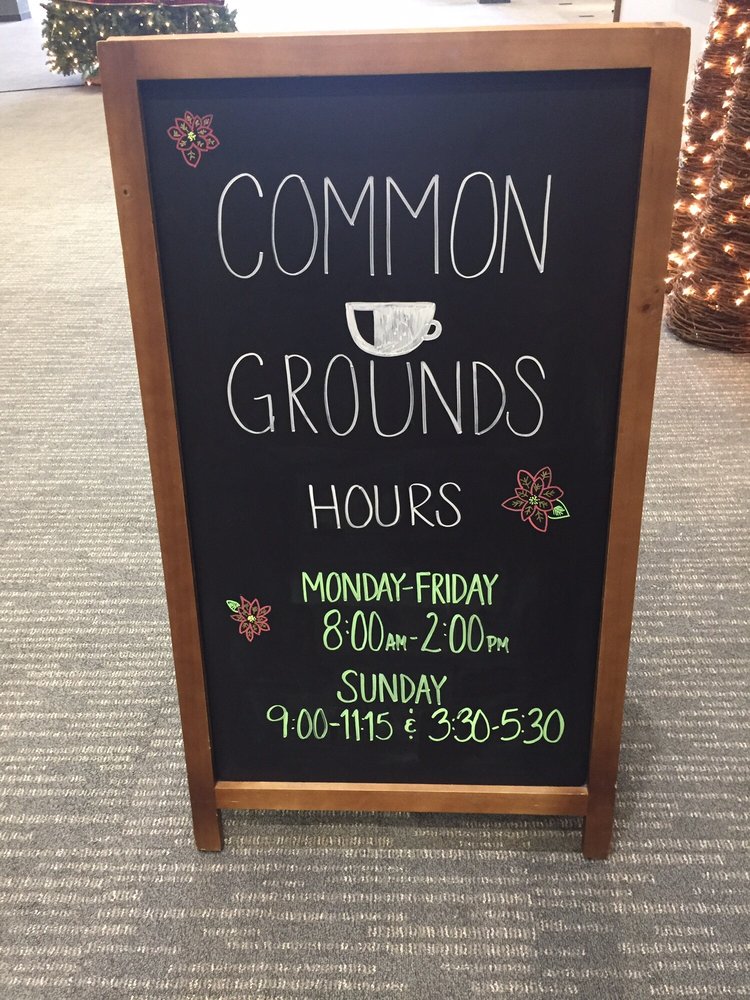 COMMON
GROUNDS
HOURS
MONDAY-FRIDAY
8:00AM-2:00PM
SUNDAY
9:00-11:15 & 3:30-5:30